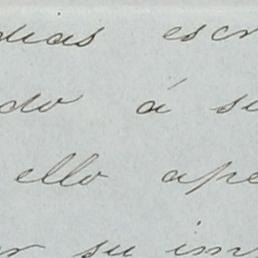 dias escr
do á su
ello ape
r su im